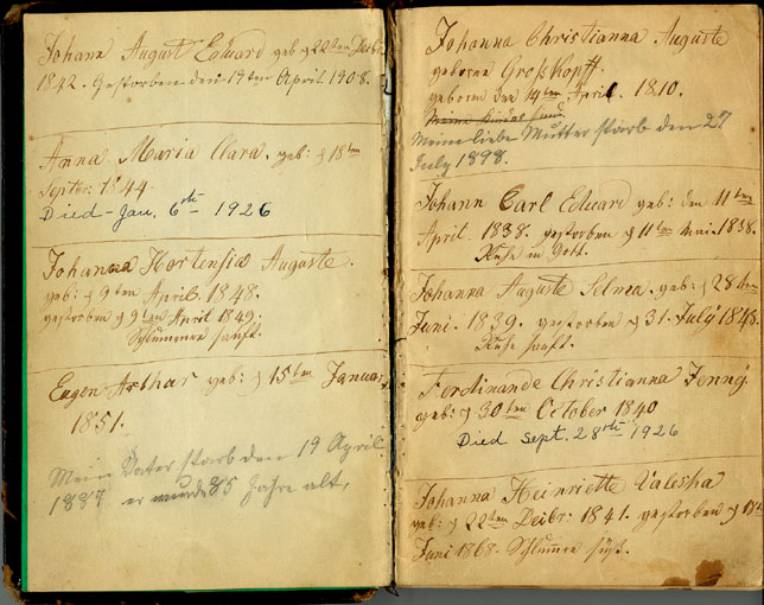 Johann August Eduard geb d 22ten Decbr
1842. Gestorben den 19ten April 1908.
Anna Maria Clara. geb: d 18ten
Septbr: 1844.
Died - Jan. 6th 1926
Johanna Hortensia Auguste.
geb: d 9ten April. 1848.
gestorben d 9ten April 1849.
Schlummre sanft.
Eugen Arthur geb: d 15ten Januar
1851.
Mein Vater starb den 19 April
1887 er wurde 85 Jahre alt,
Johanna Christianna Auguste
geborne Großkopff.
geboren den 14ten April. 1810.
Meine Kinder sind
Meine liebe Mutter starb den 27
July 1898.
Johann Carl Eduard geb: den 11ten
April 1838. gestorben d 11ten Mai. 1838.
Ruhe in Gott.
Johanna Auguste Selma. geb: d 28ten
Juni. 1839. gestorben d 31. July 1848.
Ruhe sanft.
Ferdinande Christianna Jenny.
geb: d 30ten October 1840
Died Sept. 28th 1926
Johanna Heinriette Valeska
geb: d 22ten Decbr: 1841. gestorben d
Juni 1868. Schlummre süß.